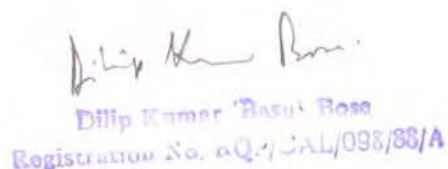 Dilip Kumar Bose.
Dilip Kumar 'Basu' Bose
Registration No. RQ./CAL/098/88/A